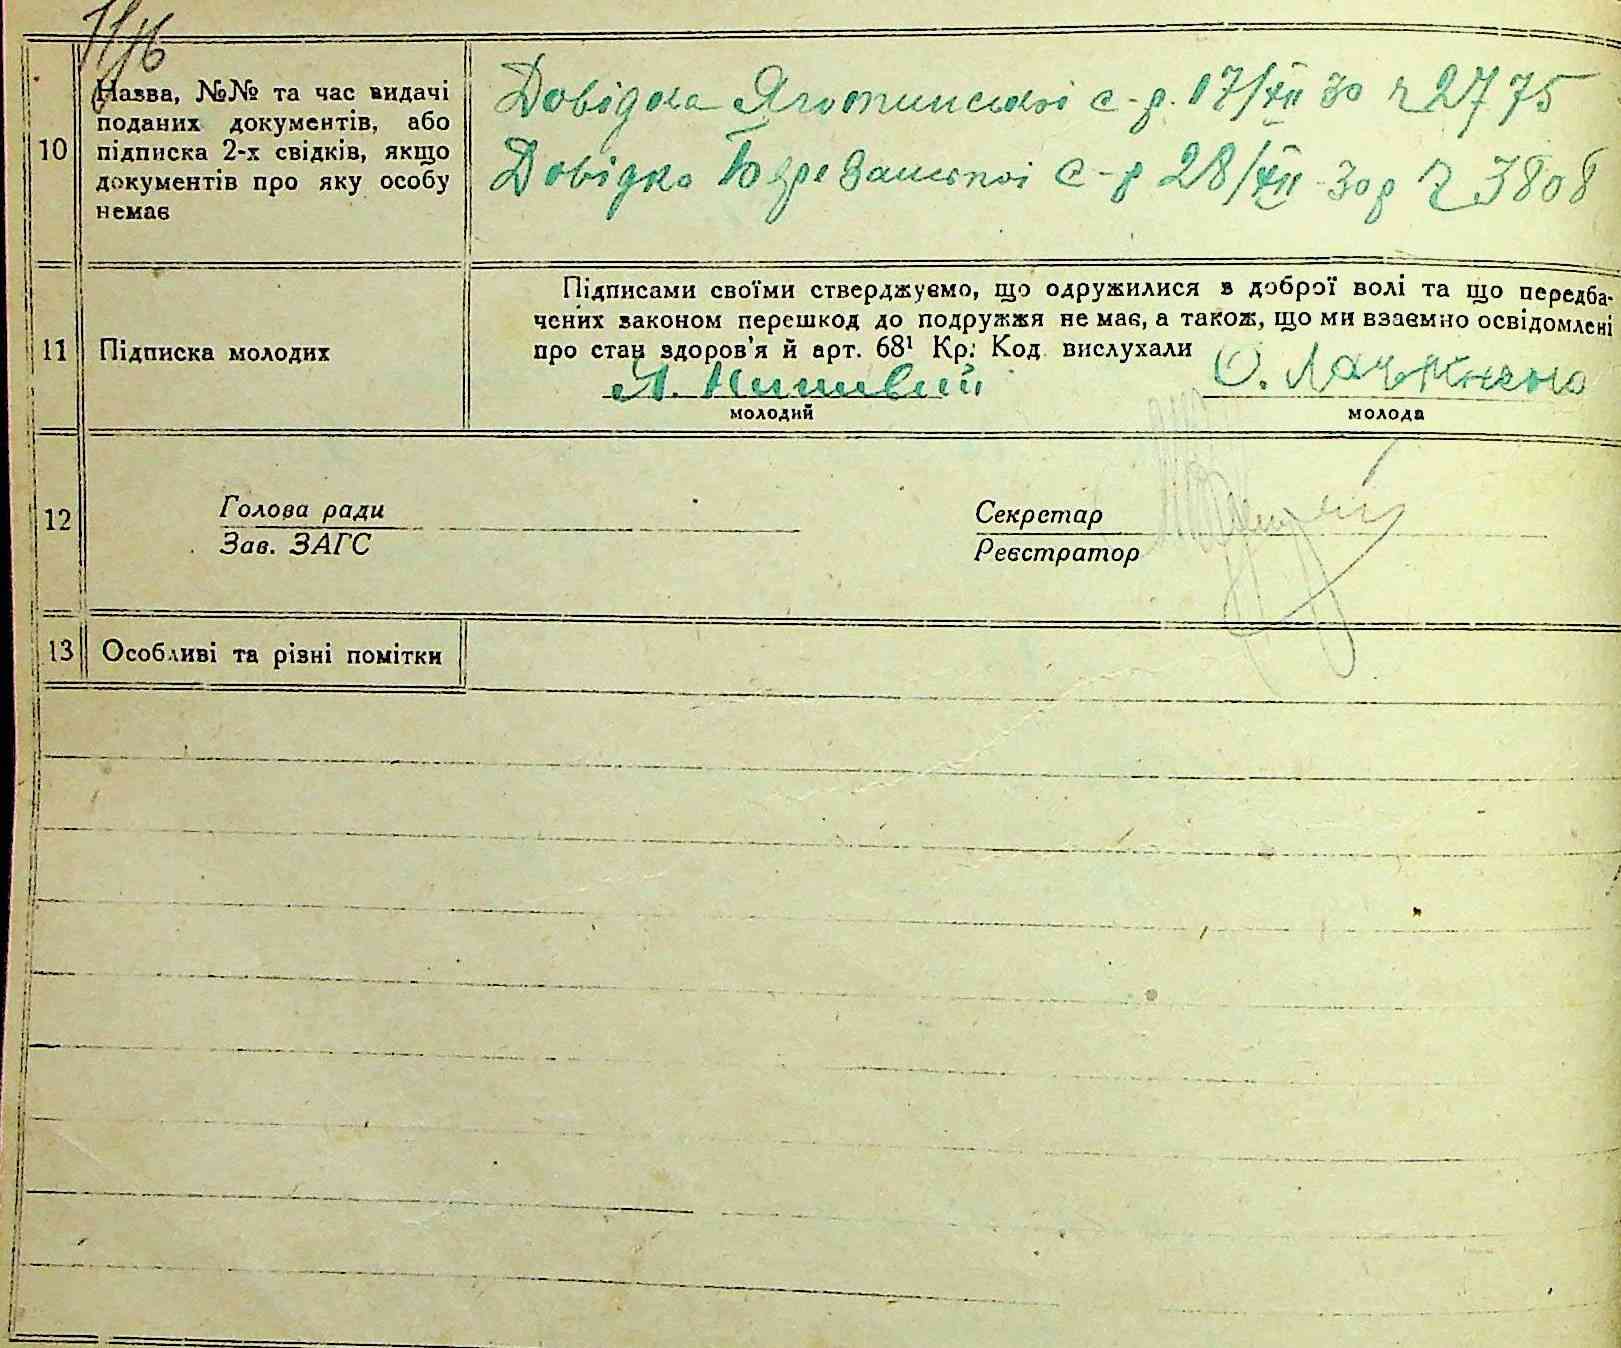 10
Назва, №№ та час видачі
поданих документів, або
підписка 2-х свідків, якщо
документів про яку особу
немає
Довідка Яготинської с-р. 17/XII 30 ч 2775
Довідка Березанської с-р 28/XII 30р ч 3808
11
Підписка молодих
Підписами своїми стверджуємо, що одружилися в доброї волі та що передба-
чених законом перешкод до подружжя не має, а також, що ми взаємно освідомлені
про стан здоров'я й арт. 68¹ Кр. Код вислухали
О.
молодий
молода
12
Голова ради
Зав. ЗАГС
Секретар
Реєстратор
13
Особливі та різні помітки